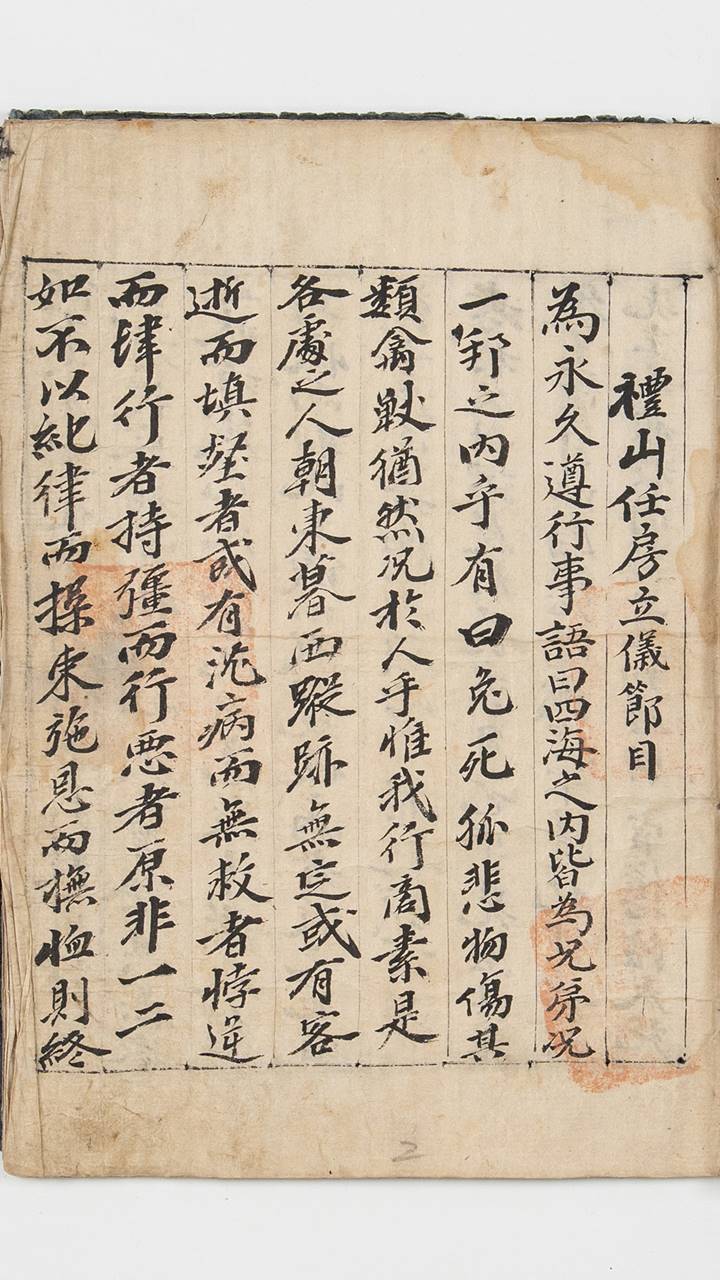 禮山任房立儀節目
為永久遵行事語曰四海之内皆為兄弟况
一邦之内乎有曰兔死狐悲物傷其
類禽獸猶然况於人乎惟我行商素是
各處之人朝東暮西蹤跡無定或有客
逝而填壑者或有沈病而無救者悖逆
而肆行者持彊而行悪者原非一二
如不以紀律而操束施恩而撫恤則終
2